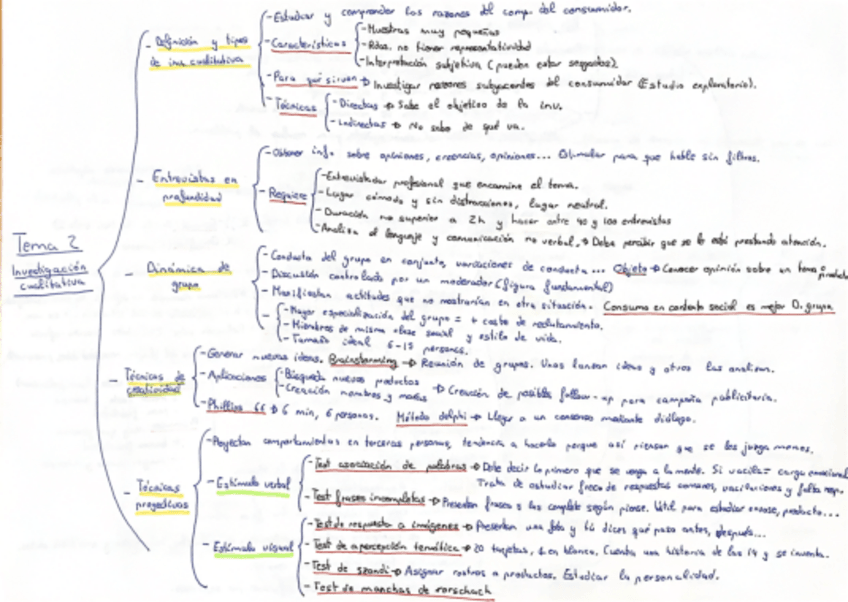 Tema 2
Investigación
cualitativa
- Definición y tipos
de inv. cualitativa
- Estudiar y comprender las razones del comp. del consumidor.
- Características
- Muestras muy pequeñas
- Rdos. no tienen representatividad
- Interpretación subjetiva (pueden estar sesgados).
- Para qué sirven → Investigar razones subyacentes del consumidor (Estudio exploratorio).
- Técnicas
- Directas → Sabe el objetivo de la inv.
- Indirectas → No sabe de qué va.
- Entrevistas en
profundidad
- Obtener inf. sobre opiniones, creencias, opiniones... Estimular para que hable sin filtros.
- Requiere
- Entrevistador profesional que encamine el tema.
- Lugar cómodo y sin distracciones, lugar neutral.
- Duración no superior a 2h y hacer entre 40 y 100 entrevistas
- Analiza el lenguaje y comunicación no verbal. → Debe percibir que se le está prestando atención.
- Dinámica de
grupo
- Conducta del grupo en conjunto, variaciones de conducta... Objeto → Conocer opinión sobre un tema o producto
- Discusión controlada por un moderador (figura fundamental)
- Manifiestan actitudes que no mostrarían en otra situación. Consumo en contexto social es mejor D. grupo
- Mayor especialización del grupo = + coste de reclutamiento.
- Miembros de misma clase social y estilo de vida.
- Tamaño ideal 6-15 personas.
- Técnicas de
creatividad
- Generar nuevas ideas. Brainstorming → Reunión de grupos. Unos lanzan ideas y otros las analizan.
- Aplicaciones
- Búsqueda nuevos productos
- Creación nombres y marcas
→ Creación de posibles follow-up para campaña publicitaria.
- Phillips 66 → 6 min, 6 personas. Método delphi → Llegar a un consenso mediante diálogo.
- Técnicas
proyectivas
- Proyectan comportamientos en terceras personas, tendencia a hacerlo porque así piensan que se les juzga menos.
- Estímulo verbal
- Test asociación de palabras → Debe decir lo primero que se venga a la mente. Si vacila = carga emocional
Trata de estudiar frec. de respuestas comunes, vacilaciones y falta resp.
- Test frases incompletas → Presentan frases y las completa según piense. Útil para estudiar envase, producto...
- Estímulo visual
- Test de respuesta a imágenes → Presentan una foto y tú dices qué pasa antes, después...
- Test de apercepción temática → 20 tarjetas, 1 en blanco. Cuenta una historia de las 19 y se inventa.
- Test de szondi → Asignar rostros a productos. Estudiar la personalidad.
- Test de manchas de rorschach